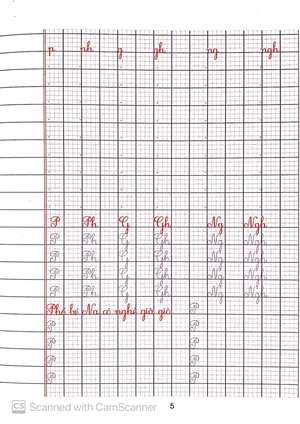 p ph g gh ng ngh
P Ph G Gh Ng Ngh
P Ph G Gh Ng Ngh
P Ph G Gh Ng Ngh
P Ph G Gh Ng Ngh
P Ph G Gh Ng Ngh
Phố bé Na có nghề giò giò P
P P
P P
P P
P P
CS Scanned with CamScanner
5